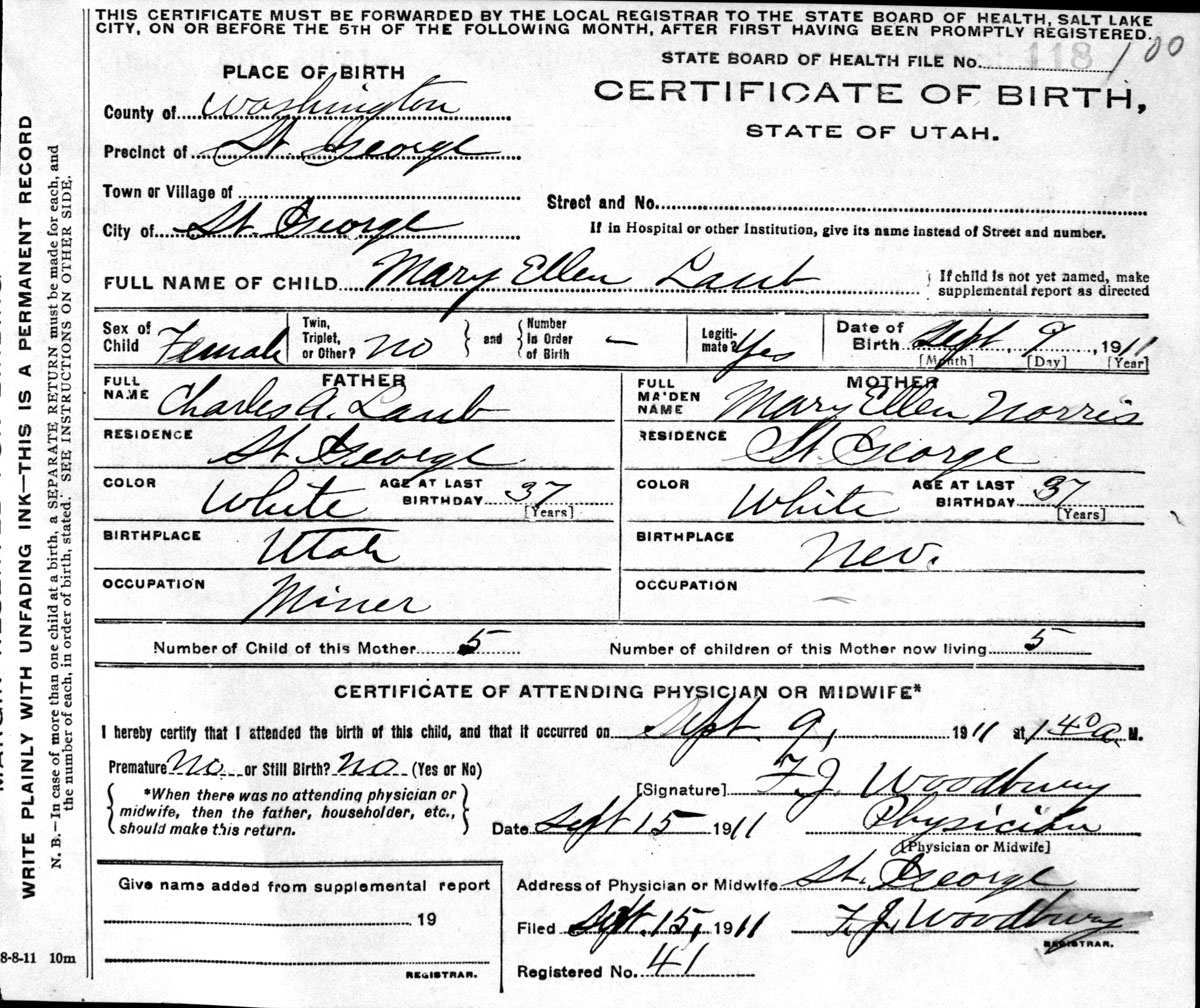 THIS CERTIFICATE MUST BE FORWARDED BY THE LOCAL REGISTRAR TO THE STATE BOARD OF HEALTH, SALT LAKE
CITY, ON OR BEFORE THE 5TH OF THE FOLLOWING MONTH, AFTER FIRST HAVING BEEN PROMPTLY REGISTERED.
STATE BOARD OF HEALTH FILE No. 118 100
PLACE OF BIRTH
CERTIFICATE OF BIRTH,
STATE OF UTAH.
County of Washington
Precinct of St. George
Town or Village of
Street and No.
City of St. George
If in Hospital or other Institution, give its name instead of Street and number.
FULL NAME OF CHILD Mary Ellen Laub
If child is not yet named, make
supplemental report as directed
Sex of
Child Female
Twin,
Triplet,
or Other? No
and
Number
In Order
of Birth —
Legiti-
mate? Yes
Date of
Birth Sept. 9, 1911
[Month] [Day] [Year]
FATHER
FULL
NAME Charles A. Laub
RESIDENCE St. George
COLOR White AGE AT LAST
BIRTHDAY 37
[Years]
BIRTHPLACE Utah
OCCUPATION Miner
MOTHER
FULL
MAIDEN
NAME Mary Ellen Norris
RESIDENCE St. George
COLOR White AGE AT LAST
BIRTHDAY 37
[Years]
BIRTHPLACE Nev.
OCCUPATION —
Number of Child of this Mother 5 Number of children of this Mother now living 5
CERTIFICATE OF ATTENDING PHYSICIAN OR MIDWIFE*
I hereby certify that I attended the birth of this child, and that it occurred on Sept. 9, 1911 at 1 40 a. M.
Premature No or Still Birth? No (Yes or No)
[Signature] F.J. Woodbury
*When there was no attending physician or
midwife, then the father, householder, etc.,
should make this return.
Date Sept 15 1911 Physician
[Physician or Midwife]
Give name added from supplemental report
19
REGISTRAR.
Address of Physician or Midwife St. George
Filed Sept. 15, 1911 F.J. Woodbury
REGISTRAR.
Registered No. 41
8-8-11 10m
WRITE PLAINLY WITH UNFADING INK—THIS IS A PERMANENT RECORD
N. B.—In case of more than one child at a birth, a SEPARATE RETURN must be made for each, and
the number of each, in order of birth, stated. SEE INSTRUCTIONS ON OTHER SIDE.